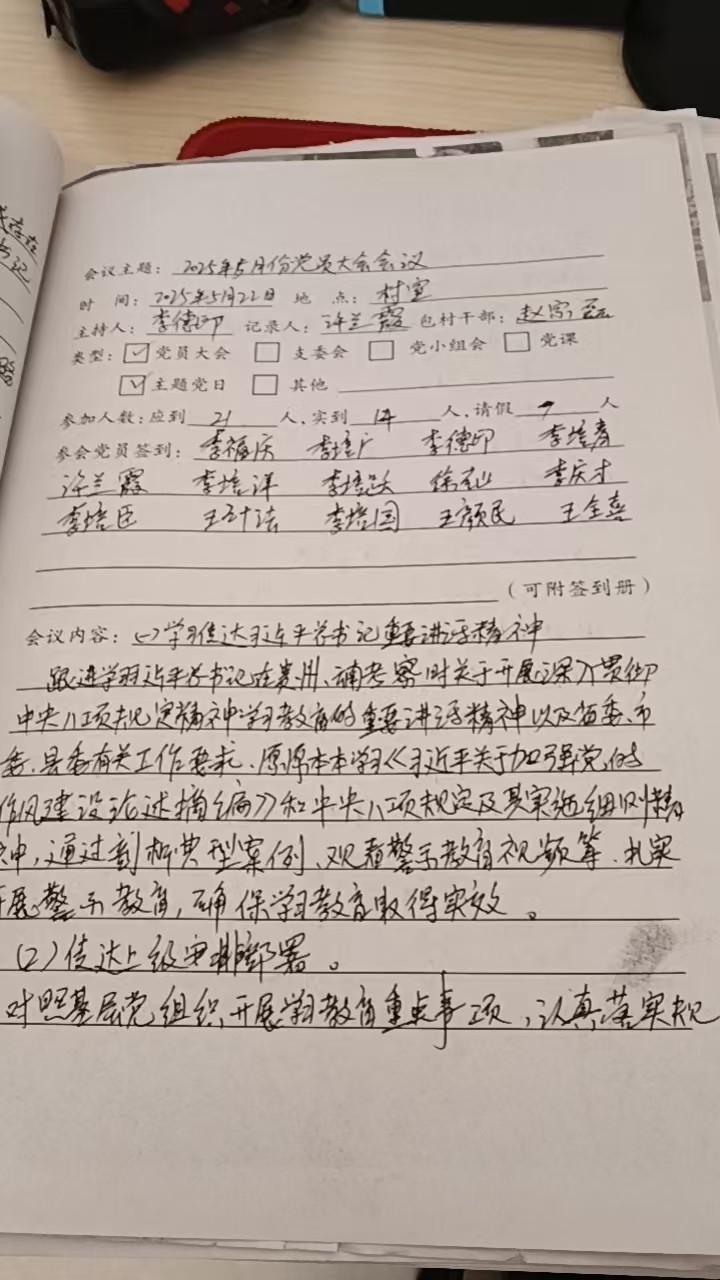 会议主题：2025年5月份党员大会会议
时 间：2025年5月22日 地 点：村室
主持人：李德印 记录人：许兰霞 包村干部：赵
类型：☑党员大会 □支委会 □党小组会 □党课
☑主题党日 □其他
参加人数：应到 21 人，实到 14 人，请假 7 人
参会党员签到：李福庆 李培广 李德印 李培春
许兰霞 李培洋 李培跃 李庆才
李培臣 王计法 李培国 王颜民 王全喜
（可附签到册）
会议内容：（1）学习传达习近平总书记重要讲话精神
跟进学习习近平总书记在贵州、考察时关于开展深入贯彻
中央八项规定精神学习教育的重要讲话精神以及省委、市
委、县委有关工作要求、原原本本学《习近平关于加强党的
作风建设论述摘编》和中央八项规定及其实施细则精
神，通过剖析典型案例、观看警示教育视频等、扎实
开展警示教育，确保学习教育取得实效。
（2）传达上级安排部署。
对照基层党组织开展学习教育重点事项，认真落实规